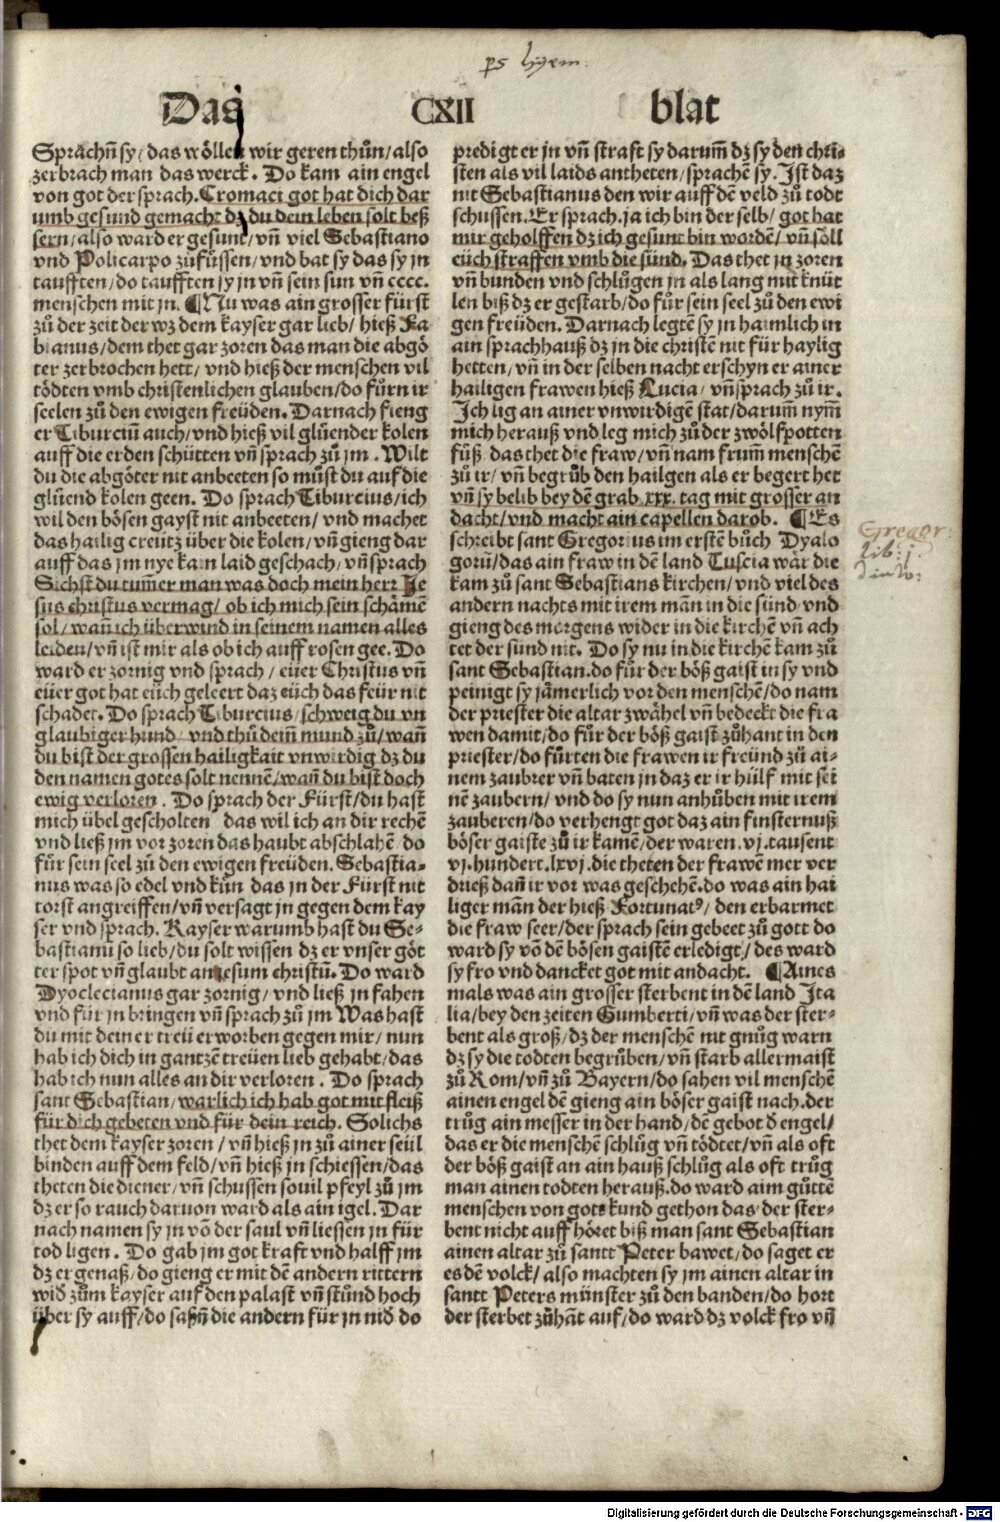 Das CXII blat
Sprachñ sy/ das wöllen wir geren thůn/ also
zerbrach man das werck. Do kam ain engel
von got der sprach. Cromaci got hat dich dar
umb gesund gemacht dz du dein leben solt beß
sern/ also ward er gesunt/ vñ viel Sebastiano
vnd Policarpo zůfüssen/ vnd bat sy das sy jn
taufften/ do taufften sy jn vñ sein sun vñ cccc.
menschen mit jn. ¶Nu was ain grosser fürst
zů der zeit der wz dem kayser gar lieb/ hieß Fa
bianus/ dem thet gar zoren das man die abgö
ter zerbrochen hett/ vnd hieß der menschen vil
tödten vmb christenlichen glauben/ do fůrn ir
seelen zů den ewigen freüden. Darnach fieng
er Tiburciū auch/ vnd hieß vil glüender kolen
auff die erden schütten vñ sprach zů jm. Wilt
du die abgöter nit anbeeten so můst du auf die
glüend kolen geen. Do sprach Tiburcius/ ich
wil den bösen gayst nit anbeeten/ vnd machet
das hailig creütz über die kolen/ vñ gieng dar
auff das jm nye kain laid geschach/ vñ sprach
Sichst du tum̄er man was doch mein herr Je
sus christus vermag/ ob ich mich sein schämē
sol/ wañ ich überwind in seinem namen alles
leiden/ vñ ist mir als ob ich auff rosen gee. Do
ward er zornig vnd sprach/ eüer Christus vñ
eüer got hat eüch geleert daz eüch das feür nit
schadet. Do sprach Tiburcius/ schweig du vn
glaubiger hund/ vnd thů deim̄ mund zů/ wañ
du bist der grossen hailigkait vnwirdig dz du
den namen gotes solt nennē/ wañ du bist doch
ewig verloren. Do sprach der Fürst/ du hast
mich übel gescholten das wil ich an dir rechē
vnd ließ jm vor zoren das haubt abschlahē/ do
fůr sein seel zů den ewigen freüden. Sebastia-
nus was so edel vnd kůn das jn der Fürst nit
torst angreiffen/ vñ versagt jn gegen dem kay
ser vnd sprach. Kayser warumb hast du Se-
bastianū so lieb/ du solt wissen dz er vnser göt
ter spot vñ glaubt an jesum christū. Do ward
Dyoclecianus gar zornig/ vnd ließ jn fahen
vnd für jn bringen vñ sprach zů jm Was hast
du mit deiner treü erworben gegen mir/ nun
hab ich dich in gantzē treüen lieb gehabt/ das
hab ich nun alles an dir verloren. Do sprach
sant Sebastian/ warlich ich hab got mit fleiß
für dich gebeten vnd für dein reich. Solichs
thet dem kayser zoren/ vñ hieß jn zů ainer seül
binden auff dem feld/ vñ hieß jn schiessen/ das
theten die diener/ vñ schussen souil pfeyl zů jm
dz er so rauch daruon ward als ain igel. Dar
nach namen sy jn vō der saul vñ liessen jn für
tod ligen. Do gab jm got kraft vnd halff jm
dz er genaß/ do gieng er mit dē andern rittern
wid zům kayser auf den palast vñ stůnd hoch
über sy auff/ do sahñ die andern für jn nid do
ps lijem:
predigt er jn vñ straft sy darum̄ dz sy den chri-
sten als vil laids antheten/ sprachē sy. Ist daz
nit Sebastianus den wir auff dē veld zů todt
schussen. Er sprach. ja ich bin der selb/ got hat
mir geholffen dz ich gesunt bin wordē/ vñ söll
eüch straffen vmb die sünd. Das thet jn zoren
vñ bunden vnd schlůgen jn als lang mit knüt
len biß dz er gestarb/ do fůr sein seel zů den ewi
gen freüden. Darnach legtē sy jn haimlich in
ain sprachhauß dz jn die christē nit für haylig
hetten/ vñ in der selben nacht erschyn er ainer
hailigen frawen hieß Lucia/ vñ sprach zů ir.
Ich lig an ainer vnwirdigē stat/ darum̄ nym̄
mich herauß vnd leg mich zů der zwölfpotten
füß/ das thet die fraw/ vñ nam frum̄ menschē
zů ir/ vñ begrůb den hailgen als er begert het
vñ sy belib bey dē grab xxx. tag mit grosser an
dacht/ vnd macht ain capellen darob. ¶Es
schreibt sant Gregorius im erstē bůch Dyalo
gorū/ das ain fraw in dē land Tuscia wär die
kam zů sant Sebastians kirchen/ vnd viel des
andern nachts mit irem man̄ in die sünd/ vnd
gieng des morgens wider in die kirchē vñ ach
tet der sünd nit. Do sy nu in die kirchē kam zů
sant Sebastian. do fůr der böß gaist in sy vnd
peinigt sy jämerlich vor den menschē/ do nam
der priester die altar zwähel vñ bedeckt die fra
wen damit/ do fůr der böß gaist zůhant in den
priester/ do fůrten die frawen ir freünd zů ai-
nem zaubrer vñ baten jn daz er ir hülf mit sei
nē zaubern/ vnd do sy nun anhůben mit irem
zauberen/ do verhengt got daz ain finsternuß
böser gaiste zů ir kamē/ der waren. vj. tausent
vj. hundert. lxvj. die theten der frawē mer ver
drieß dañ ir vor was geschehē. do was ain hai
liger man̄ der hieß Fortunatꝰ/ den erbarmet
die fraw seer/ der sprach sein gebeet zů gott do
ward sy vō dē bösen gaistē erledigt/ des ward
sy fro vnd dancket got mit andacht. ¶Aines
mals was ain grosser sterbent in dē land Ita
lia/ bey den zeiten Gumberti/ vñ was der ster-
bent als groß/ dz der menschē nit gnůg warn
dz sy die todten begrůben/ vñ starb allermaist
zů Rom/ vñ zů Bayern/ do sahen vil menschē
ainen engel dē gieng ain böser gaist nach. der
trůg ain messer in der hand/ dē gebot d̄ engel/
das er die menschē schlůg vñ tödtet/ vñ als oft
der böß gaist an ain hauß schlůg als oft trůg
man ainen todten herauß. do ward aim gůttē
menschen von gots kund gethon das/ der ster-
bent nicht auff höret biß man sant Sebastian
ainen altar zů santt Peter bawet/ do saget er
es dē volck/ also machten sy jm ainen altar in
santt Peters münster zů den banden/ do hort
der sterbet zůhāt auf/ do ward dz volck fro vñ
Gregor:
lib: j.
Digitalisierung gefördert durch die Deutsche Forschungsgemeinschaft - DFG